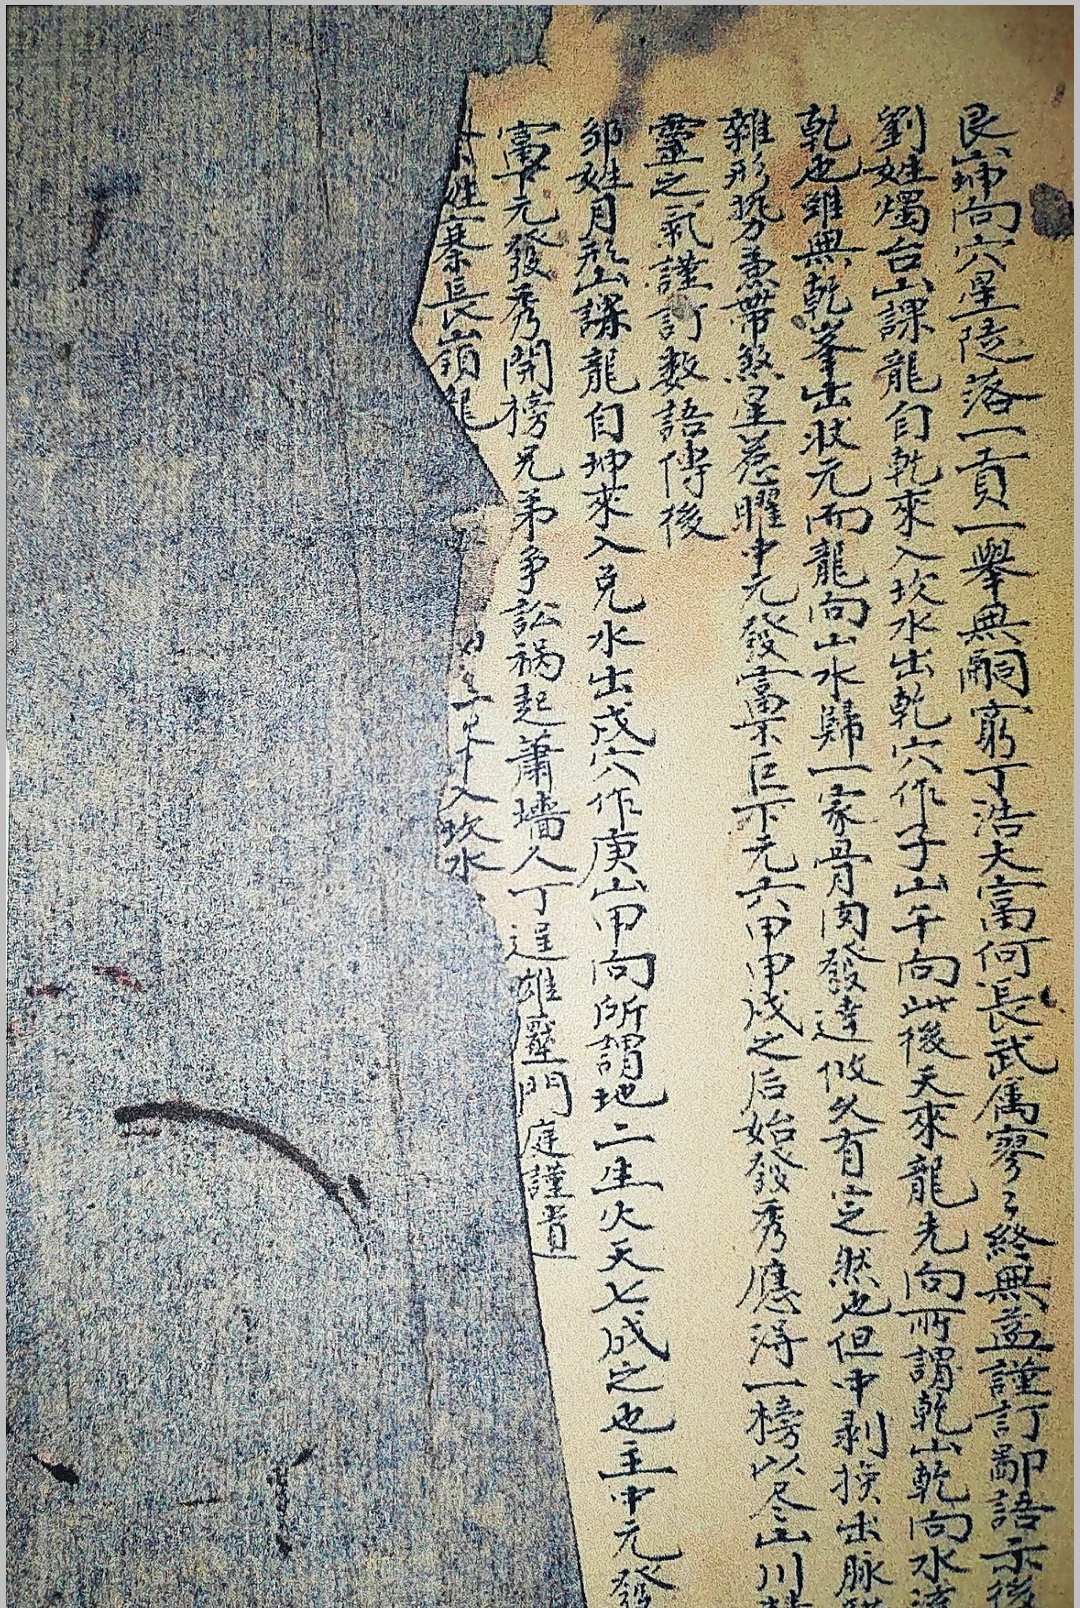 艮山坤向穴星陡落一貢一舉無嗣窮丁浩大富何長武厲寥々終無益謹訂鄙語示後
劉姓燭台山課龍自乾來入坎水出乾穴作子山午向此後天來龍先向所謂乾山乾向水流
乾也雖無乾峯出狀元而龍向山水歸一家骨肉發達悠久有定然也但中剥換出脉
雜形勢兼帶煞星惹曜中元發富不巨下元六甲甲戌之后始發秀應得一榜以尽山川
靈之氣謹訂数語傳後
邹姓月形山課龍自坤來入兌水出戌穴作庚山甲向所謂地二生火天七成之也主中元發
富下元發秀開榜兄弟争訟祸起蕭墻人丁逞雄壓門庭謹肯
姓寨長嶺龍 入坎水